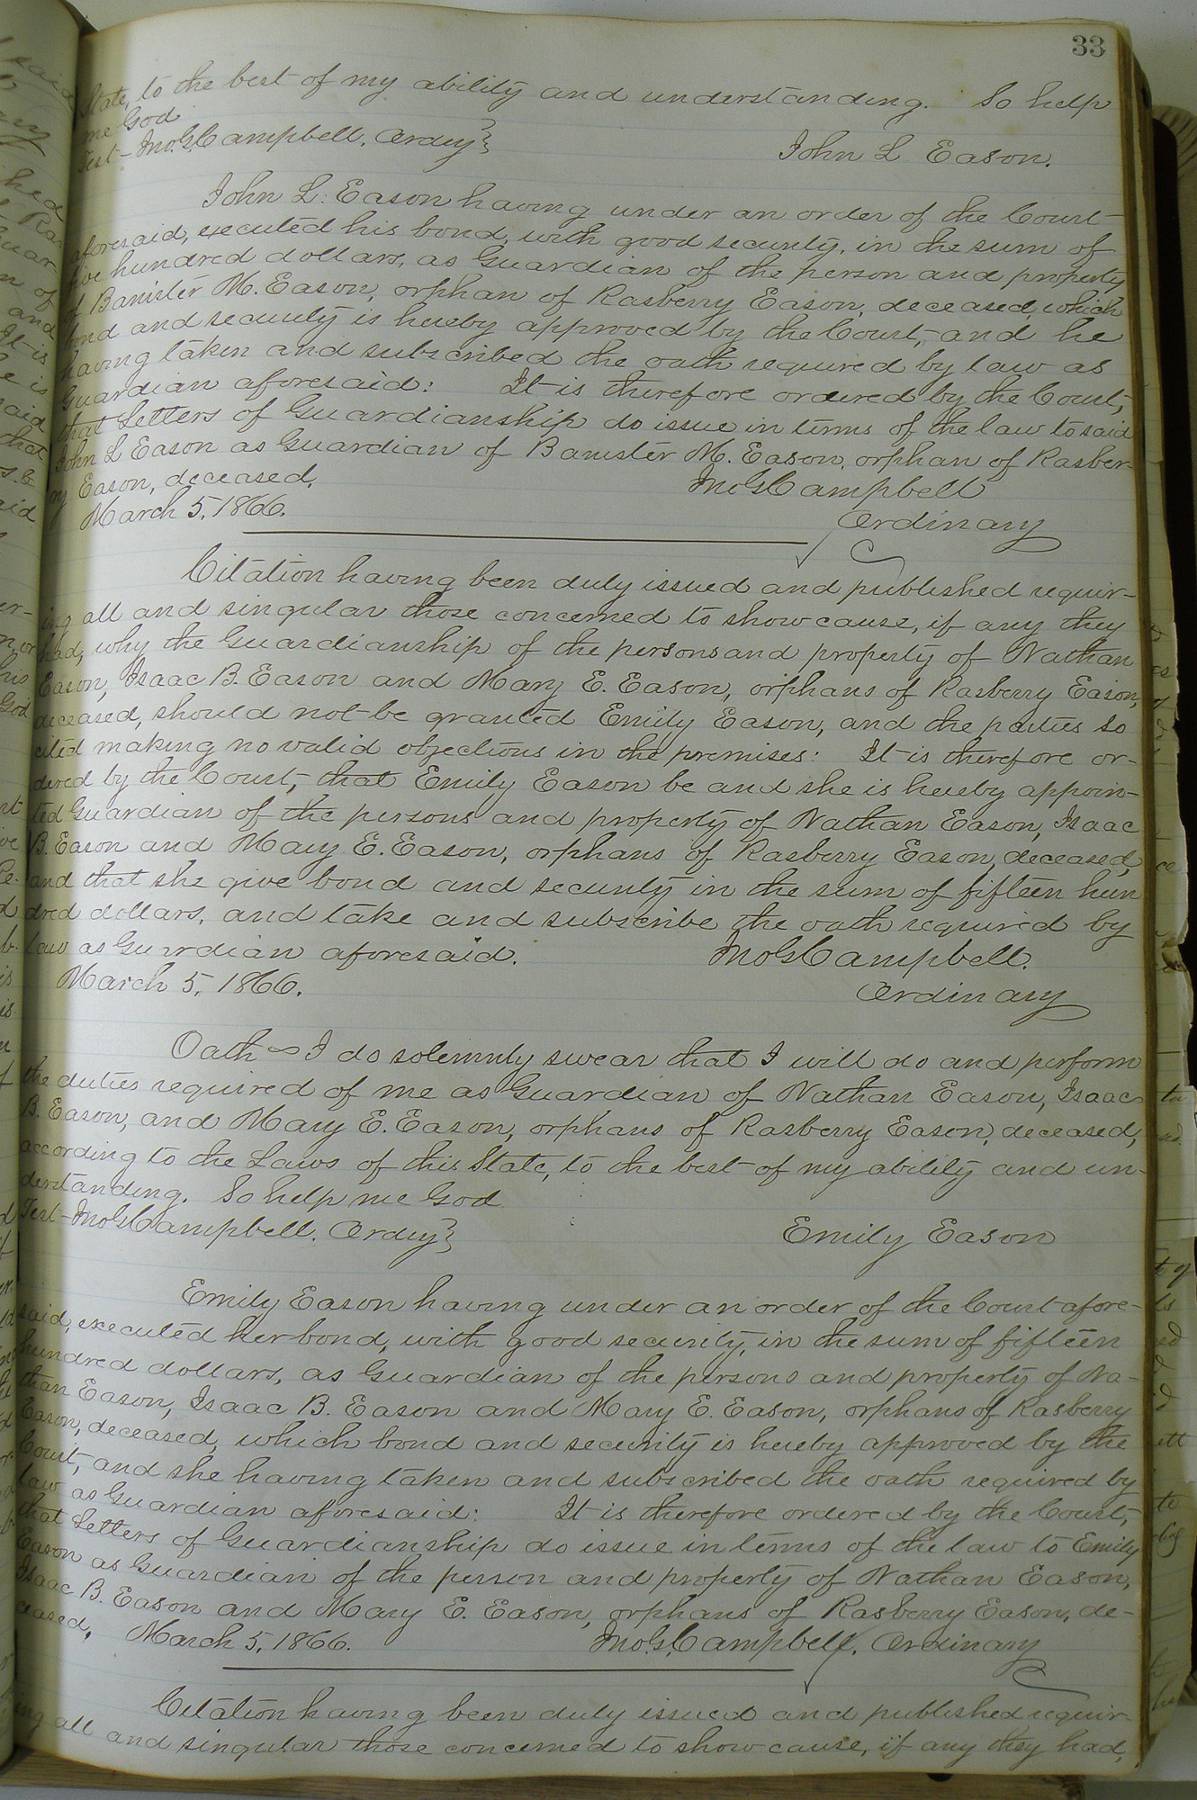 33
State, to the best of my ability and understanding. So help
me God
Test - Jno. G. Campbell, Ordry } John L Eason.
John L. Eason having under an order of the Court
aforesaid, executed his bond, with good security, in the sum of
five hundred dollars, as Guardian of the person and property
of Banister M. Eason, orphan of Rasberry Eason, deceased, which
bond and security is hereby approved by the Court, and he
having taken and subscribed the oath required by law as
Guardian aforesaid: It is therefore ordered by the Court,
that Letters of Guardianship do issue in terms of the law to said
John L Eason as Guardian of Banister M. Eason, orphan of Rasber-
ry Eason, deceased. Jno G. Campbell
March 5, 1866. Ordinary
Citation having been duly issued and published requir-
ing all and singular those concerned to show cause, if any they
had, why the Guardianship of the persons and property of Nathan
Eason, Isaac B. Eason and Mary E. Eason, orphans of Rasberry Eason,
deceased, should not be granted Emily Eason, and the parties so
cited making no valid objections in the premises: It is therefore or-
dered by the Court, that Emily Eason be and she is hereby appoin-
ted Guardian of the persons and property of Nathan Eason, Isaac
B. Eason and Mary E. Eason, orphans of Rasberry Eason, deceased,
and that she give bond and security in the sum of fifteen hun
dred dollars, and take and subscribe the oath required by
law as Guardian aforesaid. Jno G. Campbell.
March 5, 1866. Ordinary
Oath - I do solemnly swear that I will do and perform
the duties required of me as Guardian of Nathan Eason, Isaac
B. Eason, and Mary E. Eason, orphans of Rasberry Eason, deceased,
according to the Laws of this State, to the best of my ability and un-
derstanding. So help me God
Test - Jno G. Campbell. Ordry } Emily Eason
Emily Eason having under an order of the Court afore-
said, executed her bond, with good security, in the sum of fifteen
hundred dollars, as Guardian of the persons and property of Na-
than Eason, Isaac B. Eason and Mary E. Eason, orphans of Rasberry
Eason, deceased, which bond and security is hereby approved by the
Court, and she having taken and subscribed the oath required by
law as Guardian aforesaid: It is therefore ordered by the Court,
that Letters of Guardianship do issue in terms of the law to Emily
Eason as Guardian of the person and property of Nathan Eason,
Isaac B. Eason and Mary E. Eason, orphans of Rasberry Eason, de-
ceased. March 5, 1866. Jno. G. Campbell, Ordinary
Citation having been duly issued and published requir-
ing all and singular those concerned to show cause, if any they had,